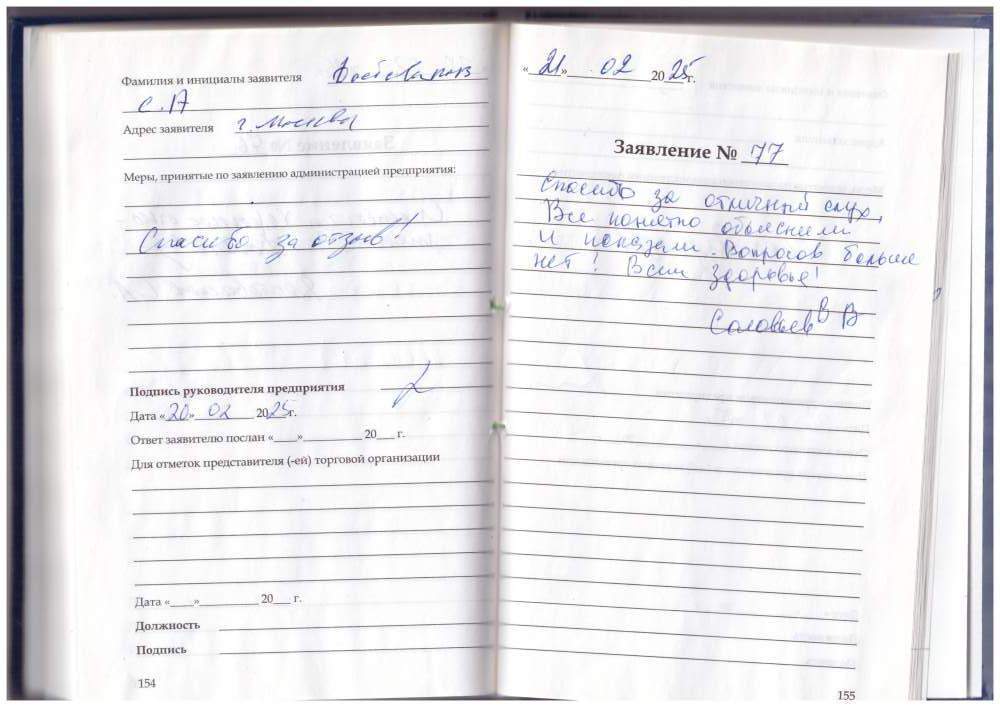 Фамилия и инициалы заявителя
С.А
Адрес заявителя г. Москва
Меры, принятые по заявлению администрацией предприятия:
Спасибо за отзыв!
Подпись руководителя предприятия
Дата «20» 02 2025г.
Ответ заявителю послан «___»__________ 20___ г.
Для отметок представителя (-ей) торговой организации
Дата «____»__________ 20___ г.
Должность
Подпись
154
«21» 02 2025г.
Заявление № 77
Спасибо за отличный слух,
Все понятно объяснили
и показали. Вопросов больше
нет! Всем здоровья!
Соловьев В В
155